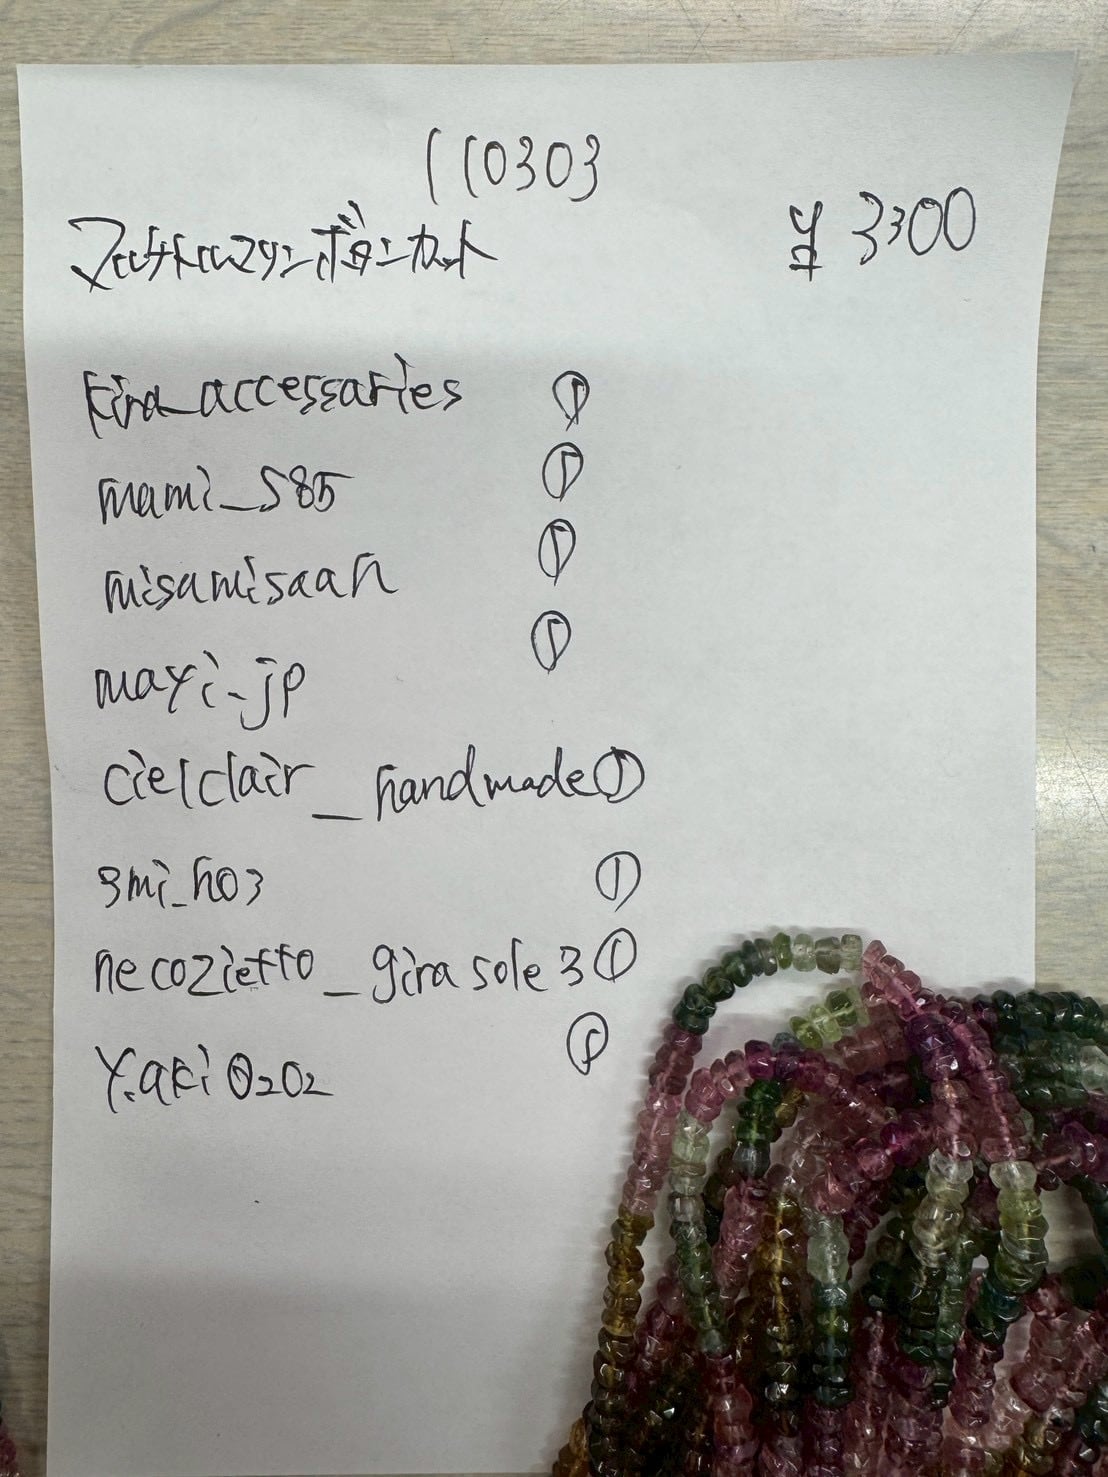 110303
マルチトルマリンボタンカット
¥3300
kira_accessaries ①
mami_s85 ①
misamisaan ①
mayi_jp ①
cielclair_handmade ①
3mi_ho3 ①
necozietto_girasole3 ①
Y.aki0202 ①